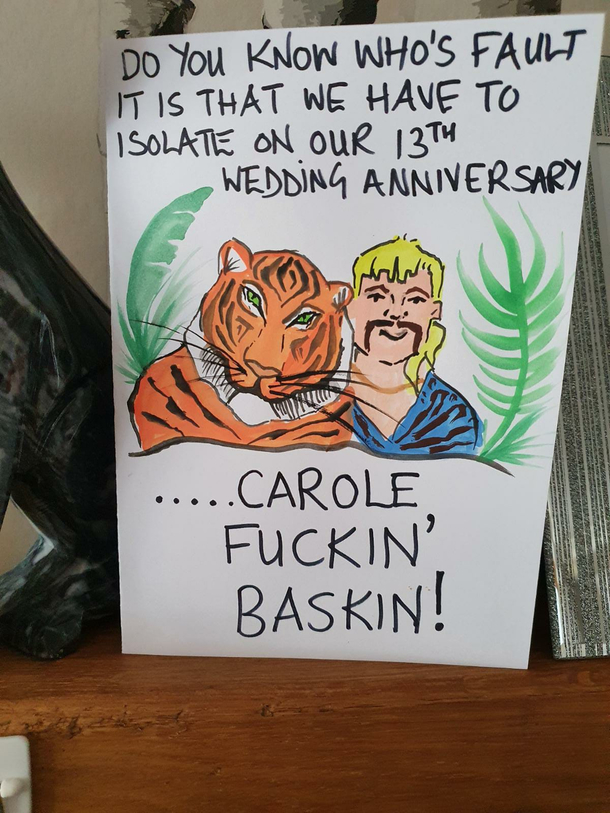 DO YOU KNOW WHO'S FAULT
IT IS THAT WE HAVE TO
ISOLATE ON OUR 13TH
WEDDING ANNIVERSARY
.....CAROLE
FUCKIN'
BASKIN!